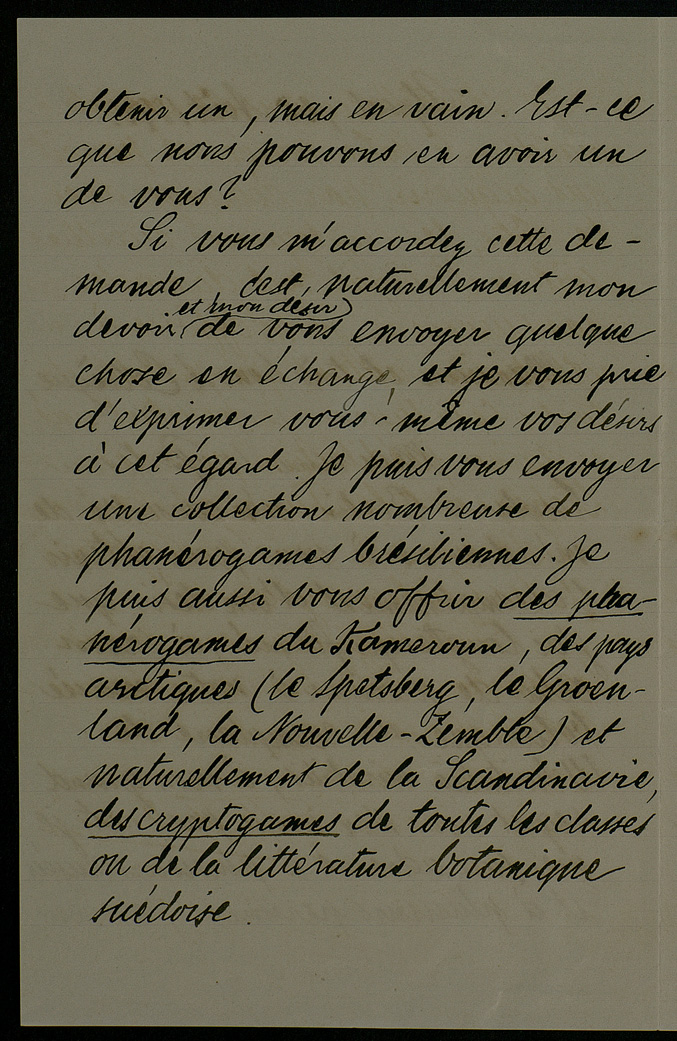 obtenir un, mais en vain. Est-ce
que nous pouvons en avoir un
de vous?
Si vous m'accordez cette de-
mande, c'est naturellement mon
et mon désir)
devoir (de vous envoyer quelque
chose en échange, et je vous prie
d'exprimer vous-même vos désirs
à cet égard. Je puis vous envoyer
une collection nombreuse de
phanérogames brésiliennes. Je
puis aussi vous offrir des pha-
nérogames du Kameroun, des pays
arctiques (le Spetsberg, le Groen-
land, la Nouvelle-Zemble) et
naturellement de la Scandinavie,
des cryptogames de toutes les classes
ou de la littérature botanique
suédoise.